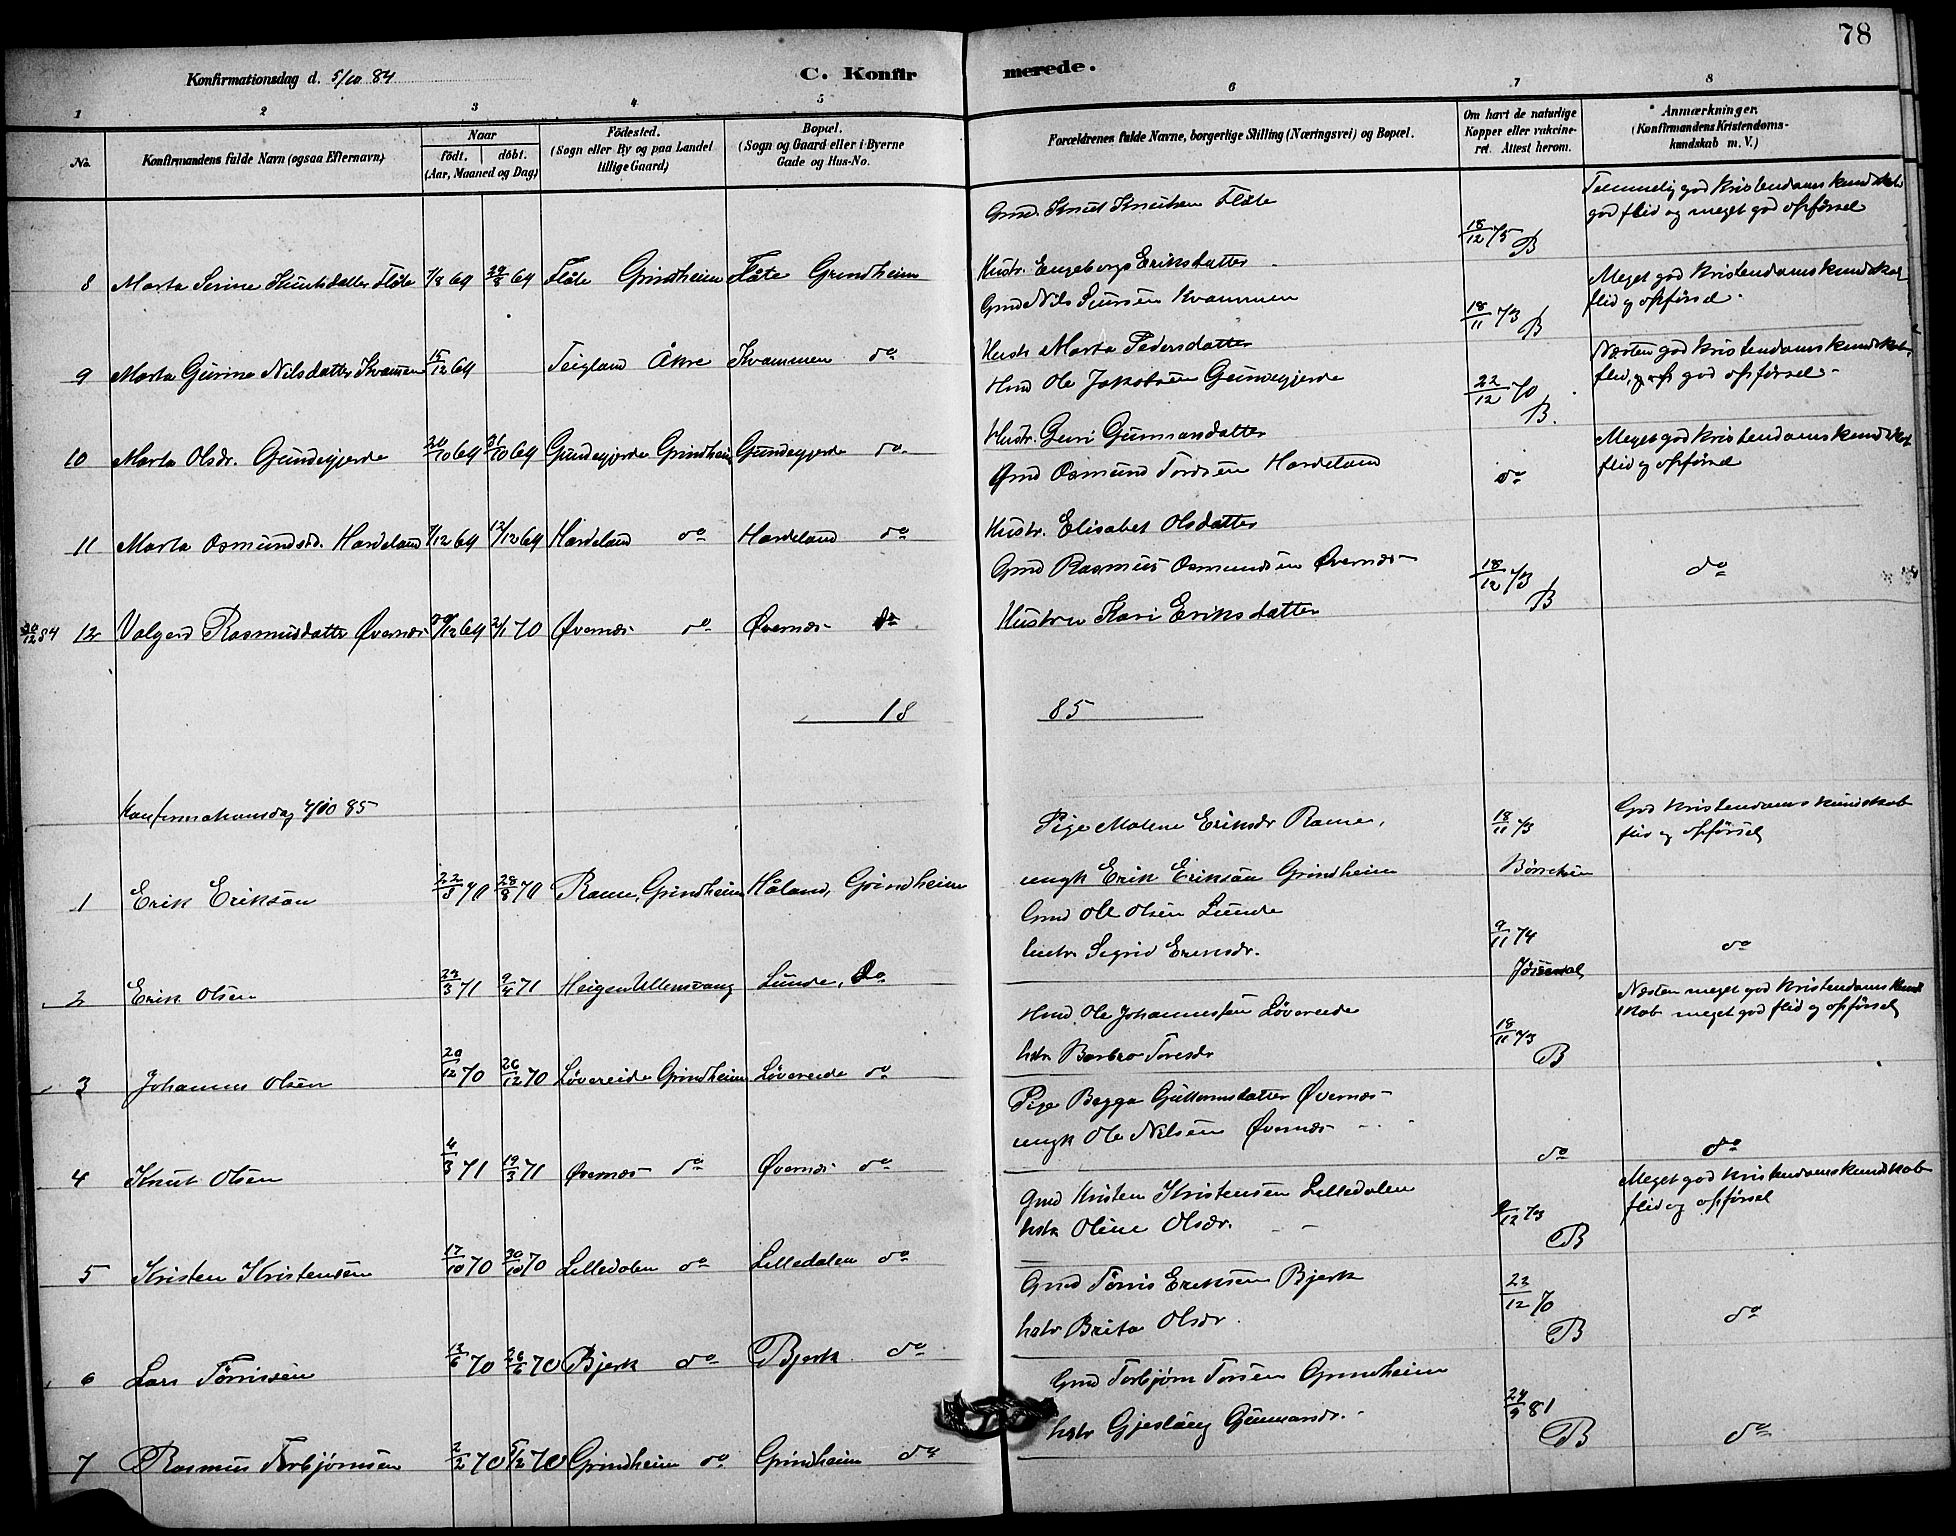 78
Konfirmationsdag d. 5/10 84
C. Konfir merede.
1 2 3 4 5 6 7 8
No.
Konfirmandens fulde Navn (ogsaa Efternavn).
Naar
födt. döbt.
(Aar, Maaned og Dag)
Födested.
(Sogn eller By og paa Landet
tillige Gaard)
Bopæl.
(Sogn og Gaard eller i Byerne
Gade og Hus-No.
Forældrenes fulde Navne, borgerlige Stilling (Næringsvei) og Bopæl.
Om havt de naturlige
Kopper eller vakcine-
ret. Attest herom.
Anmærkninger.
(Konfirmandens Kristendoms-
kundskab m. V.)
Gmd Knut Knutsen Flåte
18/12 75 B
Temmelig god kristendomskundskab
god flid og meget god opførsel
8 Marta Serine Knutsdatter Flåte 69 69 Flåte Grindheim Flåte Grindheim
Hustr. Engeborg Eriksdatter
Gmd Nils Kvammen
18/11 73 B
Meget god kristendomskundskab
flid og opførsel.
9 Marta Gurine Nilsdatter Kvamen 15/12 69 Teigland Åkre Kvammen do
Hustr Marta Pedersdatter
Hmd Ole Jakobsen Gundegjerde
22/12 70 B.
Næsten god kristendomskundskab,
flid, god opførsel
10 Marta Olsdr. Gundegjerde 20/10 69 31/10 69 Gundegjerde Grindheim Gundegjerde do
Hustr. Guri Gunnarsdatter
Gmd Osmund Tordsen Hardeland
do
Meget god kristendomskundskab
flid og opførsel
11 Marta Osmundsd. Hardeland 12 69 12/12 69 Hardeland do Hardeland do
Hustr. Elisabet Olsdatter
Gmd Rasmus Osmundsen Øvernæs
18/12 73 B
do
30/12 84 12 Valgerd Rasmusdatter Øvernæs 12 69 2/1 70 Øvernæs do Øvernæs do
Hustru Kari Eriksdatter
18 85
Konfirmationsdag 4/10 85
Pige Malene Eriksdr Rame,
18/11 73
God kristendomskundskab
flid og opførsel
1 Erik Eriksön 22/8 70 28/8 70 Rame, Grindheim Håland, Grindheim
ungk Erik Eriksön Grindheim
Gmd Ole Olsen Lunde
9/11 74
do
2 Erik Olsen 3 71 9/4 71 Ullensvang Lunde, do
hustr Sigrid
Hmd. Ole Johannessen Løvereide
18/11 73 B
Næsten meget god kristendomskund
skab meget god flid og opførsel
3 Johannes Olsen 20/12 70 26/12 70 Løvereide Grindheim Løvereide do
hstr Barbro Toresdr
Pige Begga Guttormsdatter Øvernæs
ungk Ole Nilsen Øvernæs
do
do
4 Knut Olsen 4/3 71 19/3 71 Øvernæs do Øvernæs do
Gmd Kristen Kristensen Lilledalen
12 73 B
Meget god kristendomskundskab
flid og opførsel
5 Kristen Kristensen 17/10 70 30/10 70 Lilledalen do Lilledalen do
hstr Oline Olsdr.
Gmd Törris Eriksen Bjerk
22/12 70 B
do
6 Lars Törrissen 6 70 26/6 70 Bjerk do Bjerk do
hstr Brita Olsdr.
Gmd Torbjørn Gr​indheim
24/9 81 B
do
7 Rasmus Torbjørnsen 2/2 70 2 70 Grindheim do Grindheim do
hstr Gunnarsdr.